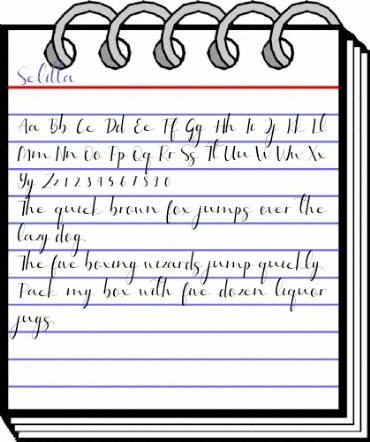 Selilla
Aa Bb Cc Dd Ee Ff Gg Hh Ii Jj Kk Ll
Mm Nn Oo Pp Qq Rr Ss Tt Uu Vv Ww Xx
Yy Zz 1 2 3 4 5 6 7 8 9 0
The quick brown fox jumps over the
lazy dog.
The five boxing wizards jump quickly.
Pack my box with five dozen liquor
jugs.